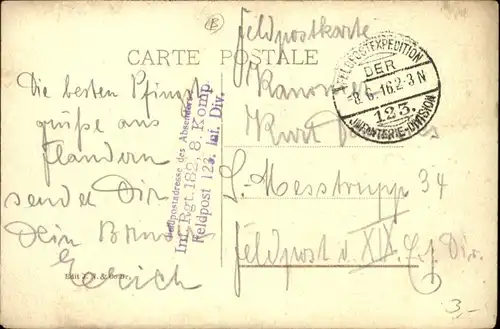 Feldpostkarte
CARTE POSTALE
FELDPOSTEXPEDITION
DER
-8.6.16.2-3N
123.
INFANTERIE-DIVISION
Feldpostadresse des Absenders
Inf. Rgt. 182, 8. Komp.
Feldpost 123. Inf. Div.
Die besten Pfingst
grüße aus
Flandern
sendet Dir
Dein Bruder
Erich
Kanonier
Kurt
S. Messtrupp 34
Feldpost d. XIX. Div.
3,-